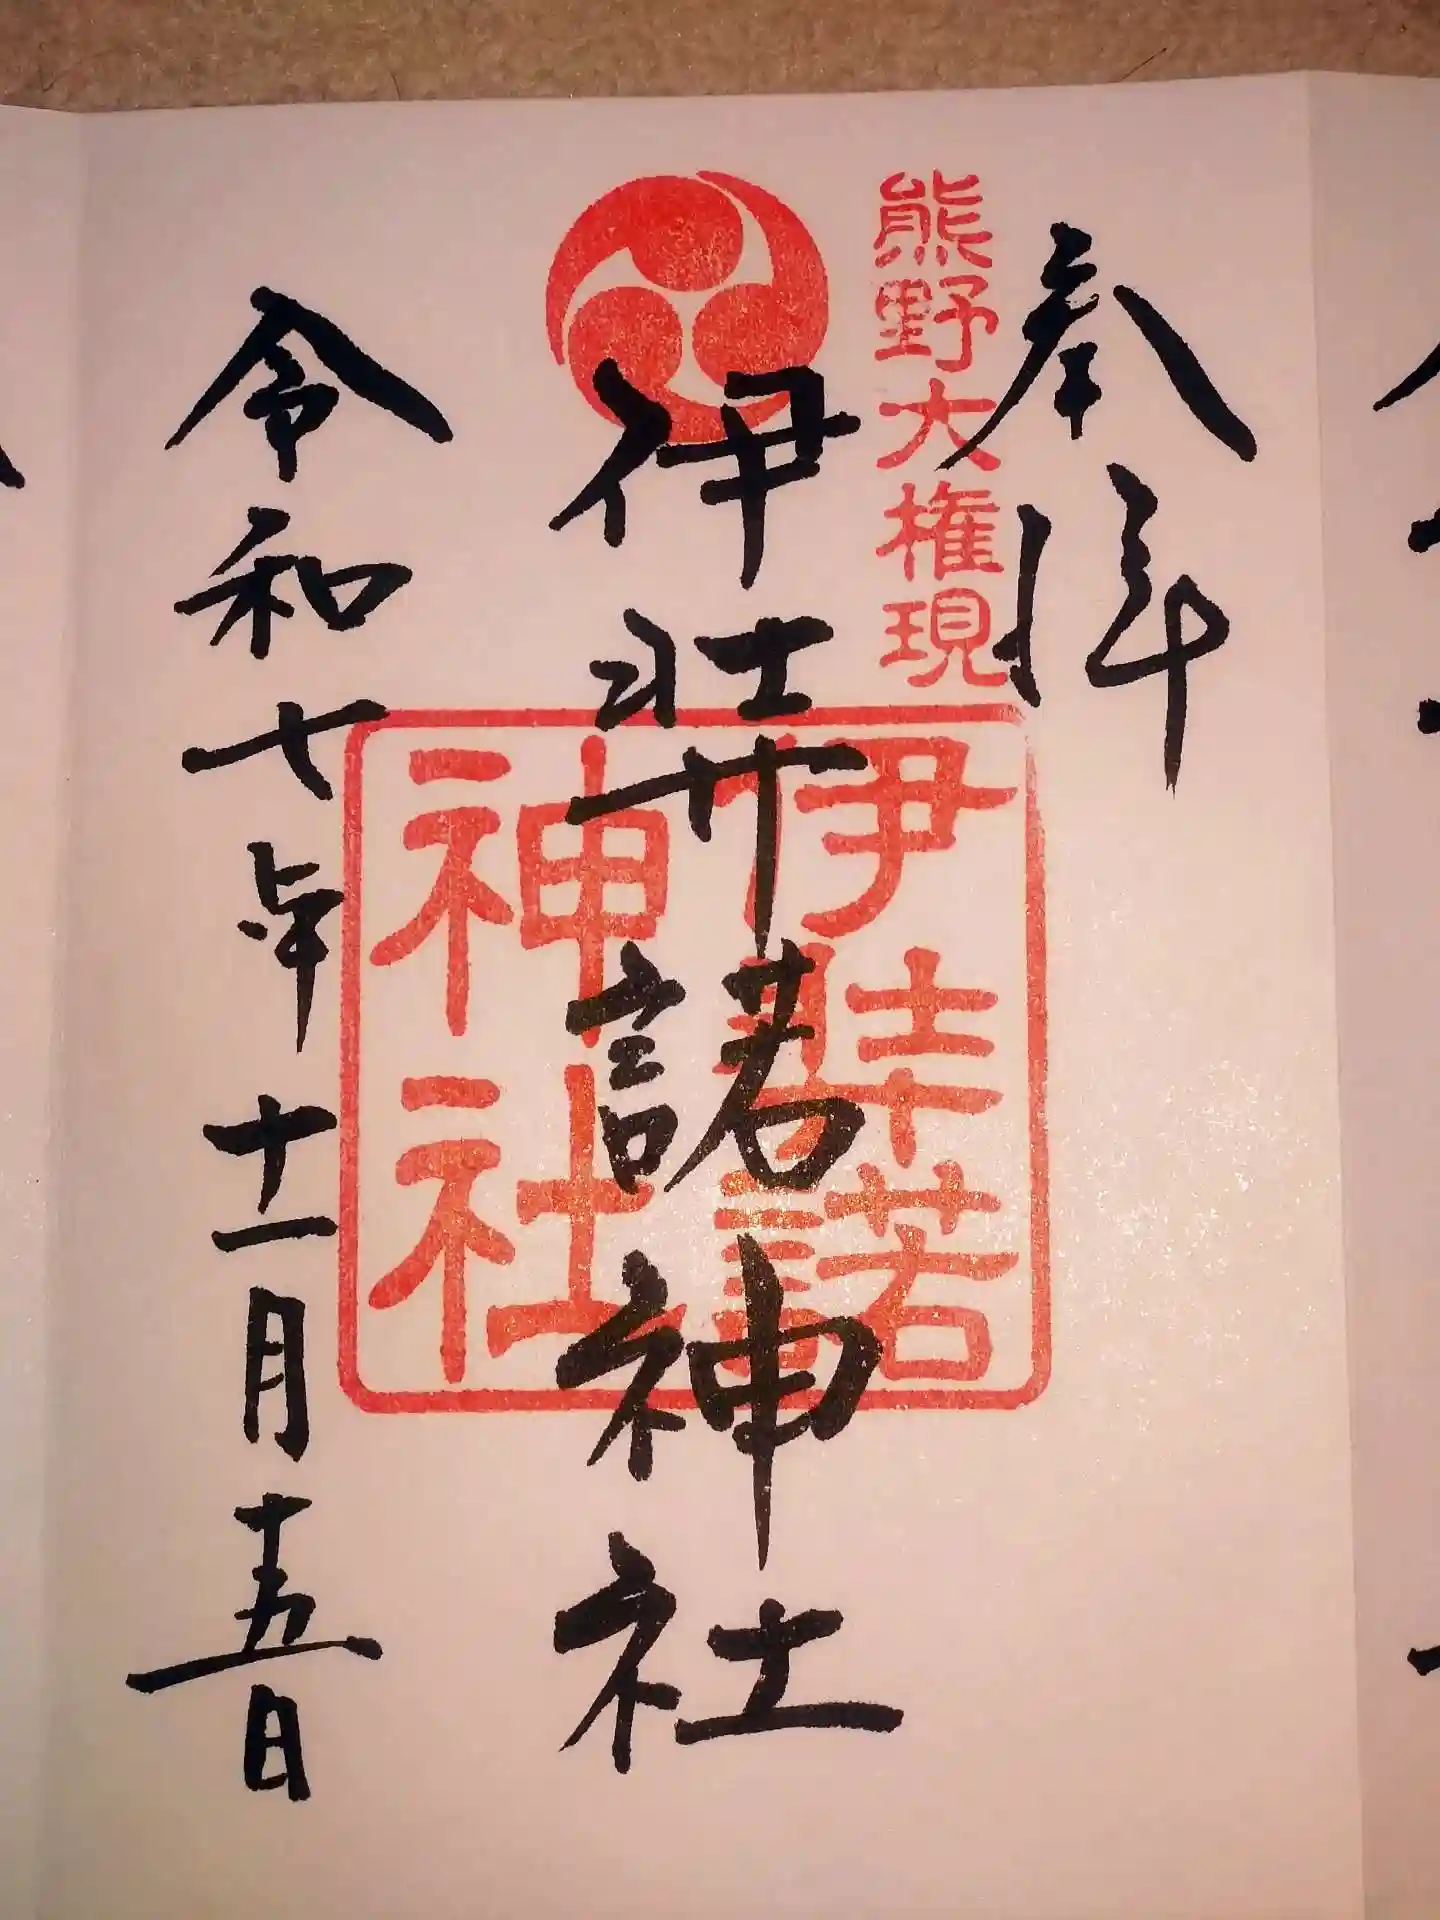 奉拝
熊野大権現
伊弉諾神社
伊弉諾
神社
令和七年十一月十五日